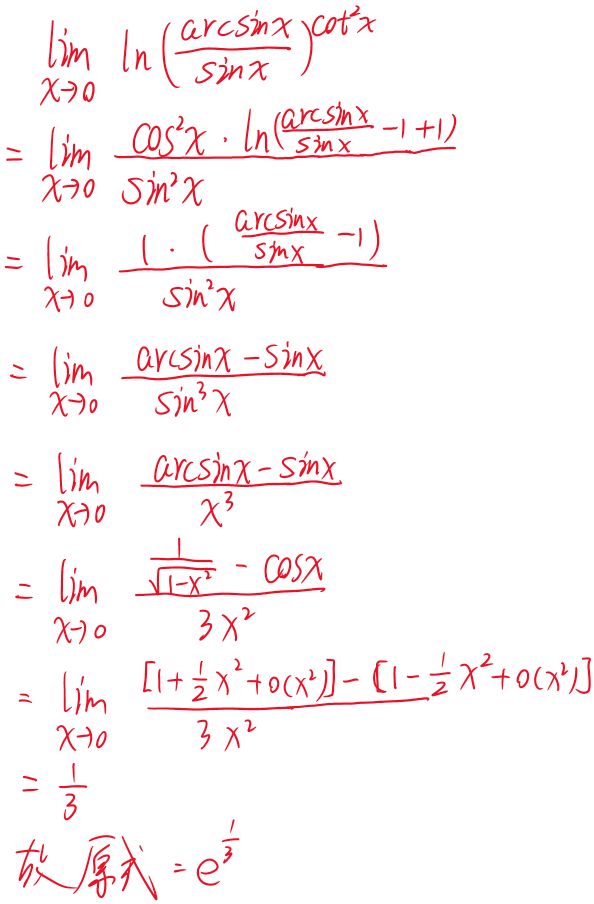 lim_{x→0} ln(arcsinx/sinx)^{cot²x}
= lim_{x→0} cos²x · ln(arcsinx/sinx - 1 + 1) / sin²x
= lim_{x→0} 1 · (arcsinx/sinx - 1) / sin²x
= lim_{x→0} (arcsinx - sinx) / sin³x
= lim_{x→0} (arcsinx - sinx) / x³
= lim_{x→0} (1/√(1-x²) - cosx) / 3x²
= lim_{x→0} ([1 + 1/2 x² + o(x²)] - [1 - 1/2 x² + o(x²)]) / 3x²
= 1/3
故 原式 = e^{1/3}